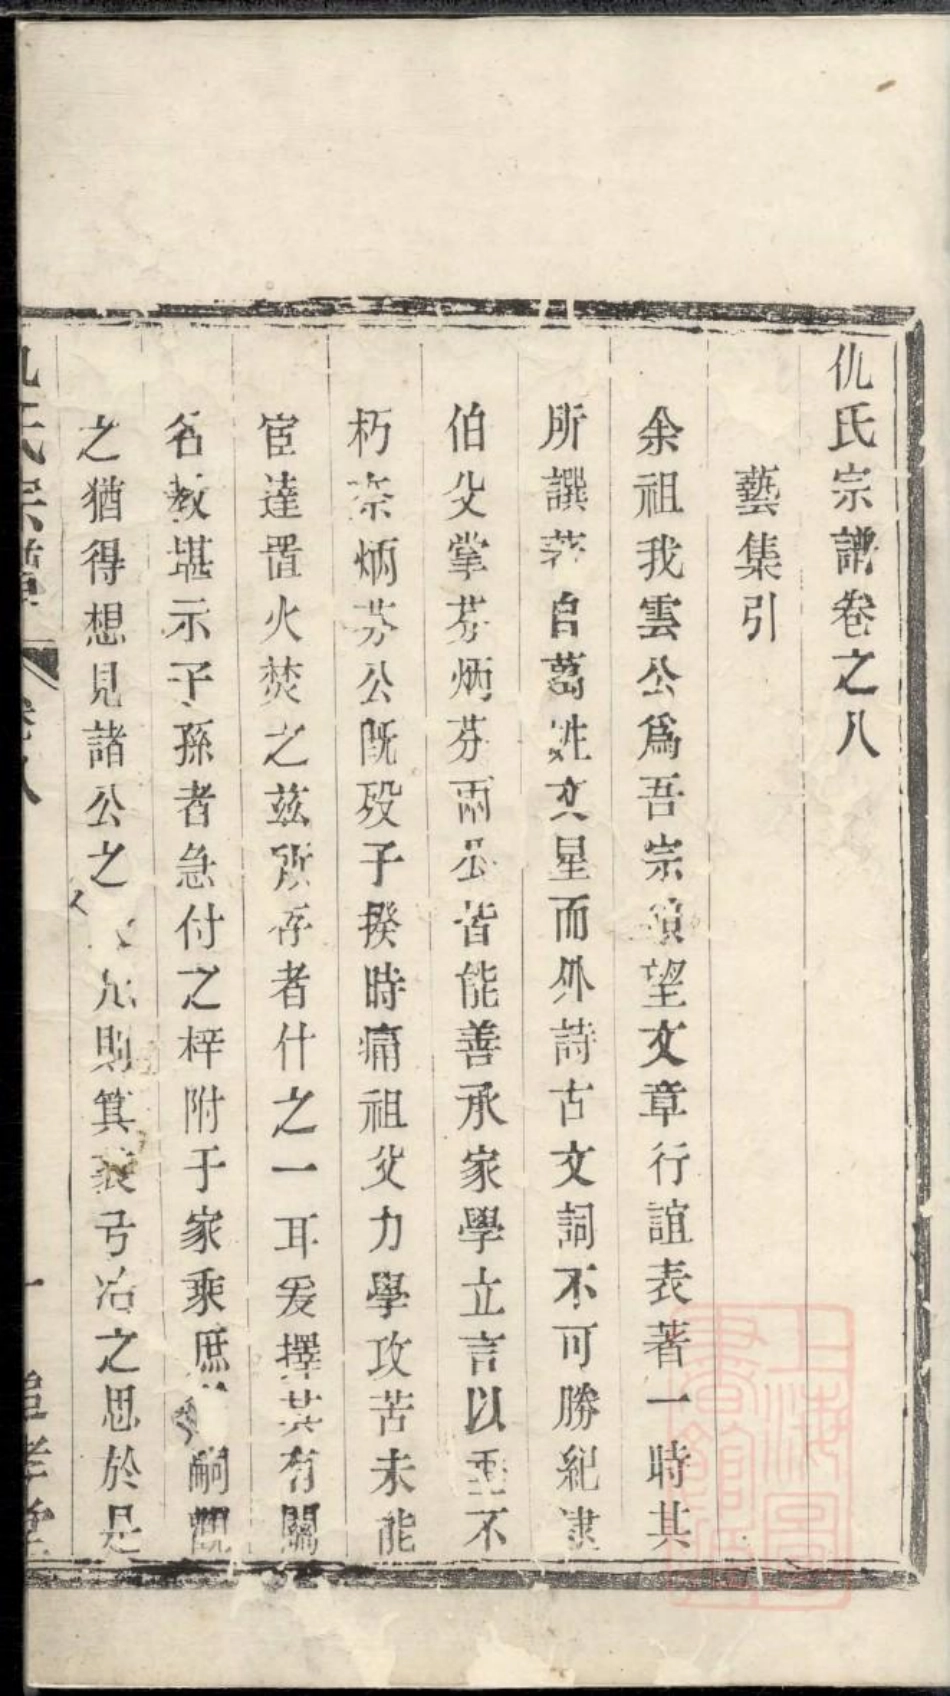 仇氏宗譜卷之八
藝集引
余祖我雲公爲吾宗碩望文章行誼表著一時其
所譔著自葛姓文星而外詩古文詞不可勝紀逮
伯父掌芬炳芬兩公皆能善承家學立言以垂不
朽奈炳芬公既歿子揆時痛祖父力學攻苦未能
宦達置火焚之茲所存者什之一耳爰擇其有關
名教堪示子孫者急付之梓附于家乘庶嗣覬
之猶得想見諸公之則箕裘弓冶之思於是
仇氏宗譜 卷八 一 追孝堂
上海圖書館藏